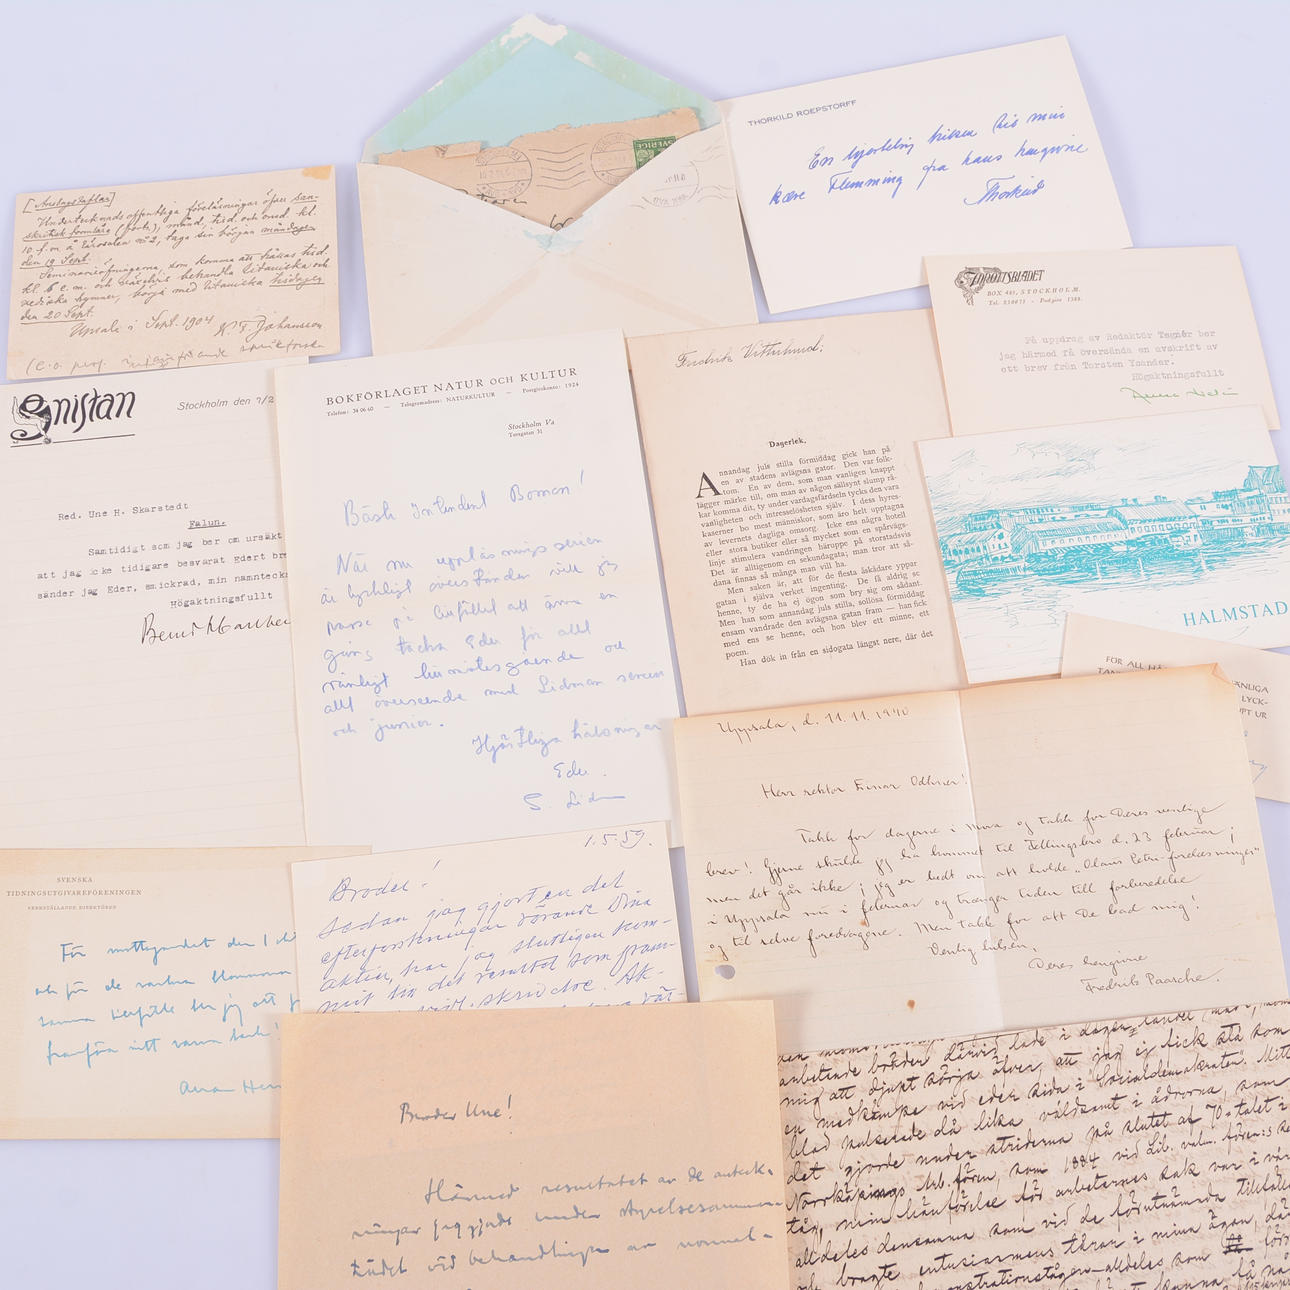 [Anslagstaflas]
Undertecknads offentliga föreläsningar öfver san-
skritisk formlära (forts), månd, tisd. och onsd. kl.
10 f.m å lärosalen nº2, taga sin början måndagen
den 19 Sept.
Seminarieöfningarna, som komma att hållas tisd.
kl. 6 e. m. och växelvis behandla litauiska och
vediska hymner, börja med litauiska tisdagen
den 20 Sept.
Upsala i Sept. 1904 K. F. Johansson
(e.o. prof.
SVERIGE
THORKILD ROEPSTORFF
En hjertelig hilsen til min
kære Flemming fra hans hengivne
Thorkild
IDROTTSBLADET
BOX 485, STOCKHOLM.
På uppdrag av Redaktör Tegnér ber
jag härmed få översända en avskrift av
ett brev från Torsten Ysander.
Högaktningsfullt
Snistan
Stockholm den 7/2
Red. Une H. Skarstedt
Falun.
Samtidigt som jag ber om ursäkt
att jag icke tidigare besvarat Edert br
sänder jag Eder, smickrad, min namnteck
Högaktningsfullt
BOKFÖRLAGET NATUR OCH KULTUR
Telefon: 34 06 60 — Telegramadress: NATURKULTUR — Postgirokonto: 1924
Stockholm Va
Torsgatan 31
Bäste Intendent Boman!
När nu uppläsningsserien
är lyckligt överstånden vill jag
passa på tillfället att ännu en
gång tacka Eder för allt
vänligt tillmötesgående och
allt överseende med Lidman senior
och junior.
Hjärtliga hälsningar
Eder.
S. Lidman
Fredrik Vetterlund:
Dagerlek.
Annandag juls stilla förmiddag gick han på
en av stadens avlägsna gator. Den var folk-
tom. En av dem, som man vanligen knappt
lägger märke till, om man av någon sällsynt slump rå-
kar komma dit, ty under vardagsfärdseln tycks den vara
vanligheten och intresselösheten själv. I dess hyres-
kaserner bo mest människor, som äro helt upptagna
av levernets dagliga omsorg. Icke ens några hotell
eller stora butiker eller så mycket som en spårvägs-
linje stimulera vandringen häruppe på storstadsvis
Det är alltigenom en sekundagata; man tror att så-
dana finnas så många man vill ha.
Men saken är, att för de flesta åskådare yppar
gatan i själva verket ingenting. De få aldrig se
henne, ty de ha ej ögon som bry sig om sådant.
Men han som annandag juls stilla, sollösa förmiddag
ensam vandrade den avlägsna gatan fram — han fick
med ens se henne, och hon blev ett minne, ett
poem.
Han dök in från en sidogata längst nere, där det
HALMSTAD
FÖR ALL
ÄNLIGA
LYCK-
PT UR
Uppsala, d. 11.11.1940
Herr rektor Einar Odhner!
Takk for dagerne i Mora og takk for Deres venlige
brev! Gjerne skulde jeg ha kommet til Tellingsbro d. 23 februar;
men det går ikke; jeg er bedt om att holde „Olaus Petri-forelæsninger"
i Uppsala nu i februar og trænger tiden till forberedelse
og til selve foredragene. Men takk for att De bad mig!
Venlig hilsen,
Deres hengivne
Fredrik Paasche.
SVENSKA
TIDNINGSUTGIVAREFÖRENINGEN
VERKSTÄLLANDE DIREKTÖREN
För
och för de vackra blommorna
samma tillfälle ber jag att få
framföra mitt varma tack!
1.5.59.
Broder!
Sedan jag gjort en del
efterforskningar rörande Dina
aktier, har jag slutligen kom-
mit till det resultat som fram-
skrivelse. Ak-
Broder Une!
Härmed resultatet av de anteck-
ningar jag gjorde under styrelsesamman-
trädet vid behandlingen av normal-
arbetande bröder därvid lade i dagen
mig att djupt sörja öfver, att jag ej fick stå som
en medkämpe vid eder sida i "Socialdemokraten". Mitt
blod pulserade då lika våldsamt i ådrorna, som
det gjorde under striderna på slutet af 70-talet i
Norrköpings Arb.fören, som 1884 vid Lib. valm. fören:s
tåg, min hänförelse för arbetarnes sak var i
alldeles densamma som vid de förutnämda tillfällena